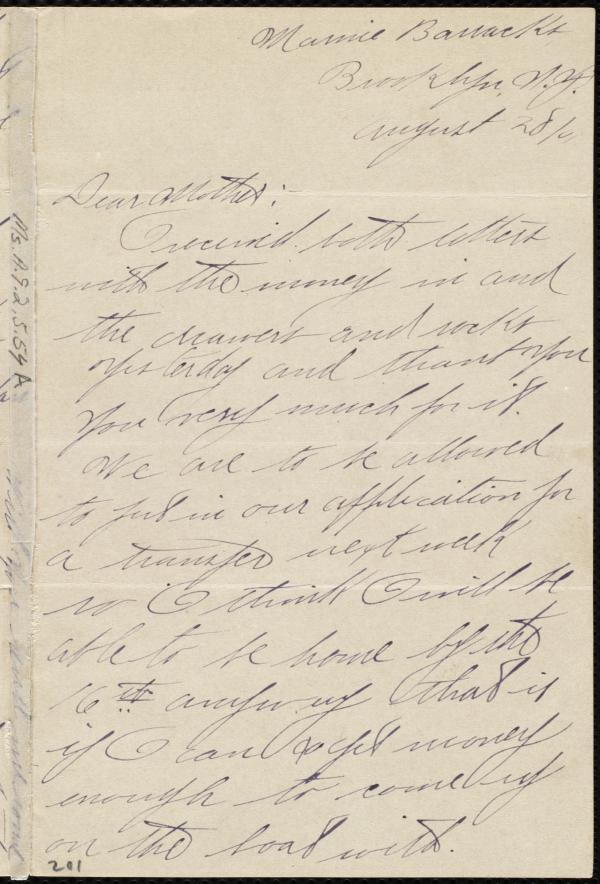 Marine Barracks
Brooklyn, N.Y.
August 28/
Dear Mother:
I received both letters
with the money in and
the drawers and socks
yesterday and thank you
you very much for it.
We are to be allowed
to put in our application for
a transfer next week
so I think I will be
able to be home by the
16th anyway that is
if I can get money
enough to come up
on the boat with.
201
Ms. A.9.2.5.59 A